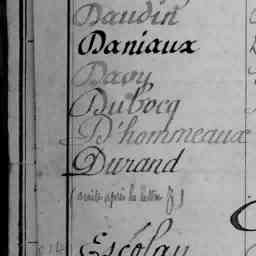 Daudin
Daniaux
Davy
Dubocq
D'hommeaux
Durand
(suite après la lettre J)
Escolan